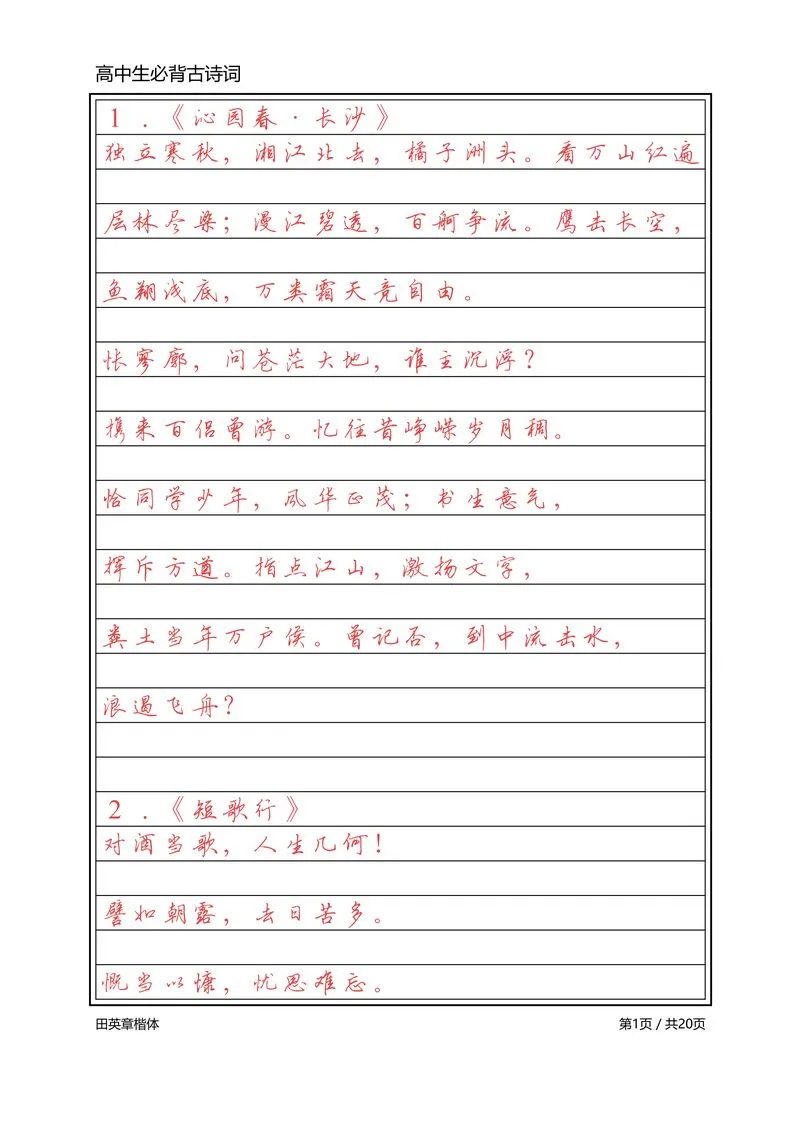 高中生必背古诗词
1．《沁园春·长沙》
独立寒秋，湘江北去，橘子洲头。看万山红遍
层林尽染；漫江碧透，百舸争流。鹰击长空，
鱼翔浅底，万类霜天竞自由。
怅寥廓，问苍茫大地，谁主沉浮？
携来百侣曾游。忆往昔峥嵘岁月稠。
恰同学少年，风华正茂；书生意气，
挥斥方遒。指点江山，激扬文字，
粪土当年万户侯。曾记否，到中流击水，
浪遏飞舟？
2．《短歌行》
对酒当歌，人生几何！
譬如朝露，去日苦多。
慨当以慷，忧思难忘。
田英章楷体
第1页 / 共20页